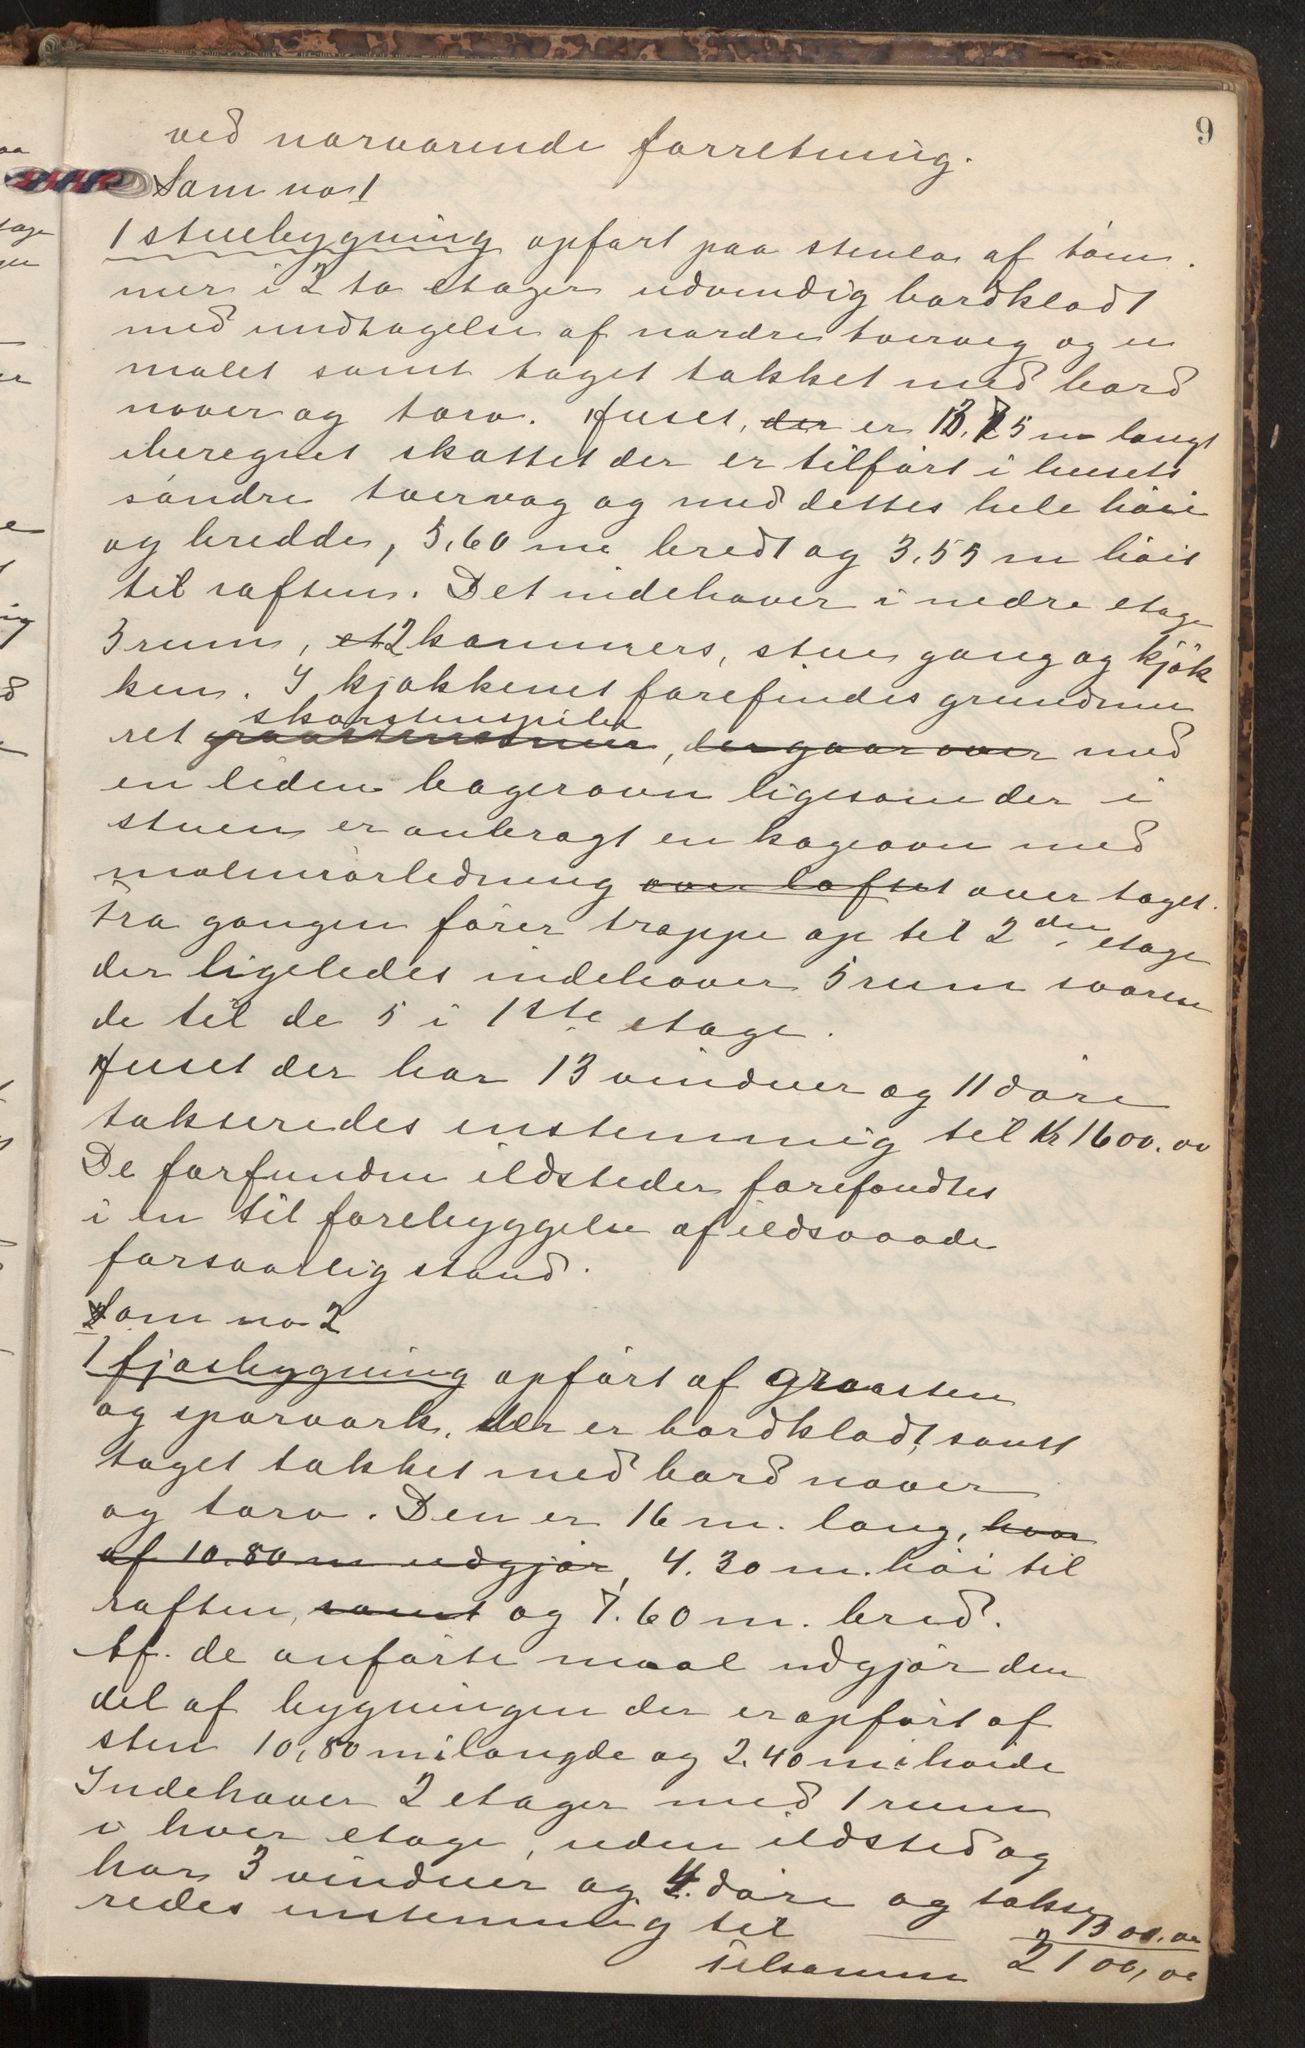 9
ved nærværende forretning.
Som no 1
1 stuebygning opført paa stenla af tøm-
mer i 2 to etager udvendig bordklædt
med undtagelse af nordre tvervæg og u
malet samt taget tækket med bord
næver og torv. Huset, der er 12.75 m langt
iberegnet skottet der er tilført i husets
søndre tvervæg og med dettes hele høie
og bredde, 5,60 m bredt og 3.55 m høit
til raften. Det indehaver i nedre etage
3 rum, et 2 kammers, stue gang og kjøk
ken. I kjøkkenet forefindes grundmu
skorstenspibe
ret graastensmur, der gaar over med
en liden bagerovn ligesom der i
stuen er anbragt en kogeovn med
malmrørledning over loftet over taget.
Fra gangen fører trappe op til 2den etage
der ligeledes indehaver 5 rum svaren
de til de 5 i 1ste etage.
Huset der har 13 vinduer og 11 døre
takseredes enstemmig til Kr 1600.00
De forfundne ildsteder forefandtes
i en til forebyggelse af ildsvaade
forsvarlig stand.
Som no 2
1 fjøsbygning opført af graasten
og sparværk, der er bordklædt samt
taget tækket med bord næver
og torv. Den er 16 m. lang, hvor
af 10.80 m udgjør, 4.30 m. høi til
raften, samt og 7.60 m. bred.
Af de anførte maal udgjør den
del af bygningen der er opført af
sten 10,80 m i længde og 2.40 m i høide
Indehaver 2 etager med 1 rum
i hver etage, uden ildsted og
har 3 vinduer og 4 døre og takse
redes enstemmig til — 1300.00
Tilsammen 2100,00